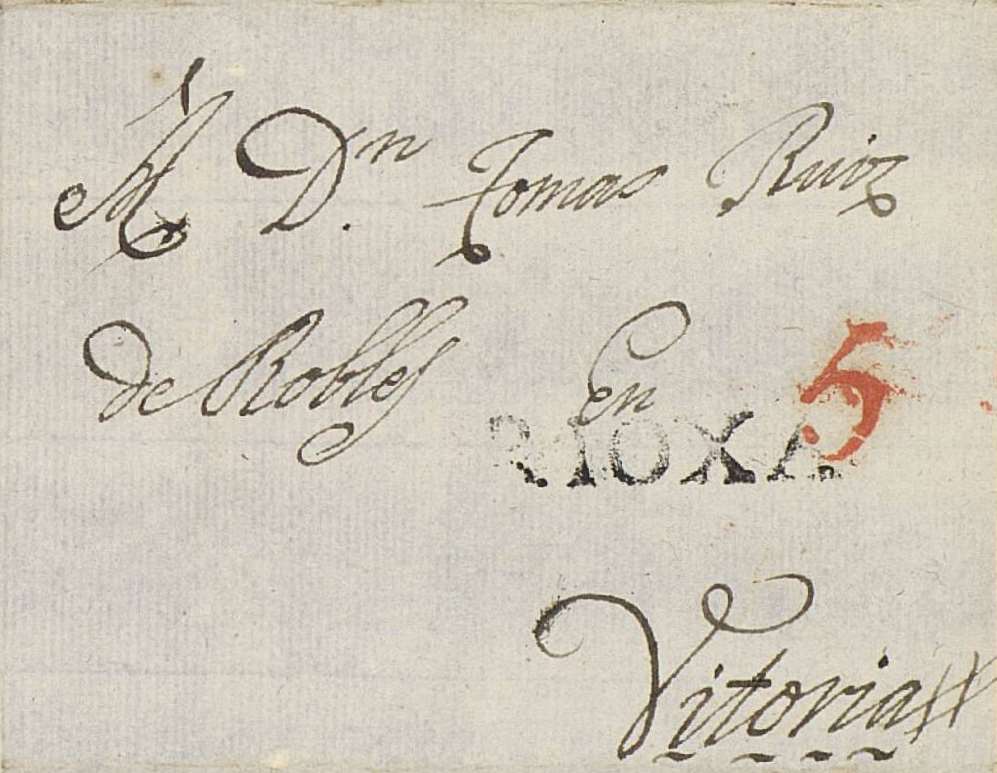 A Dn. Tomas Ruiz
de Robles En
5
RIOXA
Vitoria